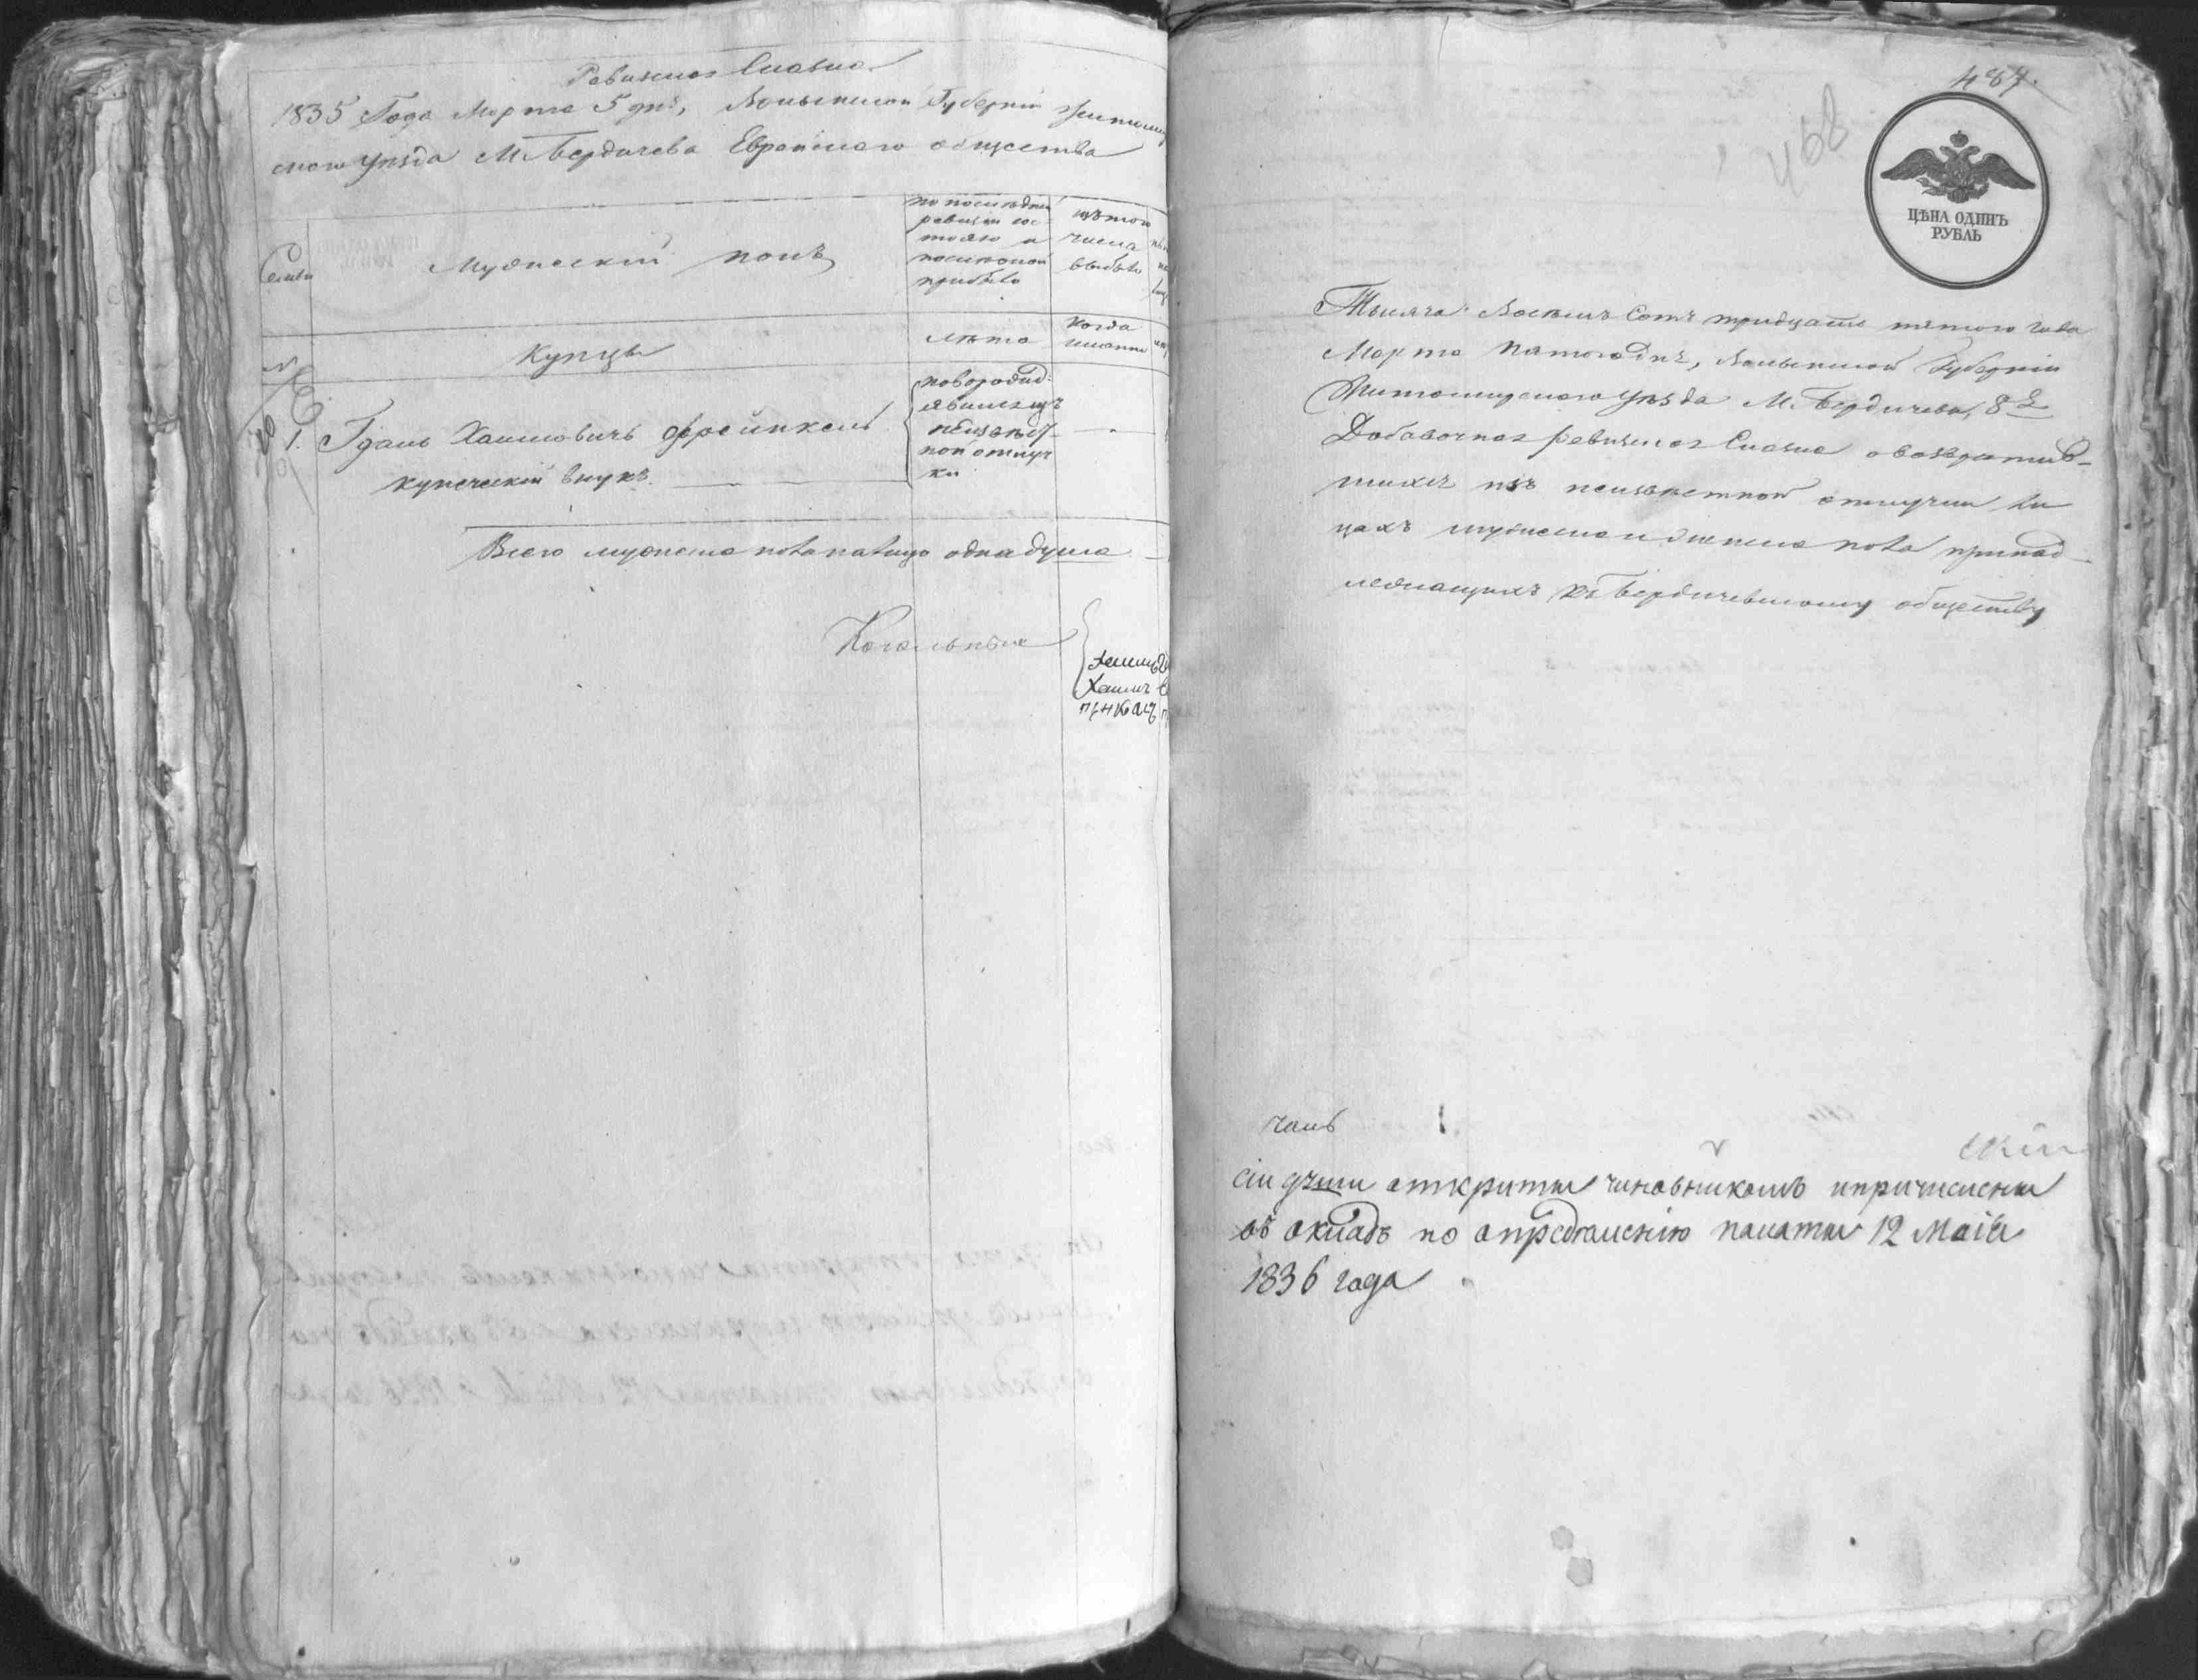 Ревизская Сказка
1835 Года Марта 5 дня, Волынской Губернии Житомир
скаго Уезда М. Бердичева Еврейскаго общества
Семьи
Мужескій полъ
по последней
ревизіи сос-
тояло и
после оной
прибыло
изъ того
числа
выбыло
Купцы
лета
когда
именно
№
1. Гдаль Хаимовичъ Френкель
купеческій внукъ
новорожд:
явился изъ
неизвест-
ной отлуч
ки
Всего мужеска пола налицо одна душа
Кагальные
Хаимъ
487.
468
ЦѢНА ОДИНЪ
РУБЛЬ
Тысяча Восемь Сотъ тридцать пятого года
Марта пятого дня, Волынской Губерніи
Житомирскаго Уезда М. Бердичева, 8я
Добавочная Ревизская Сказка о возвратив-
шихся изъ неизвестной отлучки ли
цахъ мужеска и женска пола принад
лежащихъ къ Бердичевскому обществу
сіи души открыты чиновникомъ и причислены
въ окладъ по определенію палаты 12 Маія
1836 года